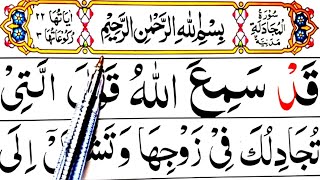 سُوْرَةُ
الْمُجَادَلَةِ
مَدَنِيَّةٌ
بِسْمِ اللهِ الرَّحْمٰنِ الرَّحِيْمِ
اٰيَاتُهَا ٢٢
رُكُوْعَاتُهَا ٣
قَدْ سَمِعَ اللهُ قَوْلَ الَّتِيْ
تُجَادِلُكَ فِيْ زَوْجِهَا وَتَشْتَكِيْ اِلَى